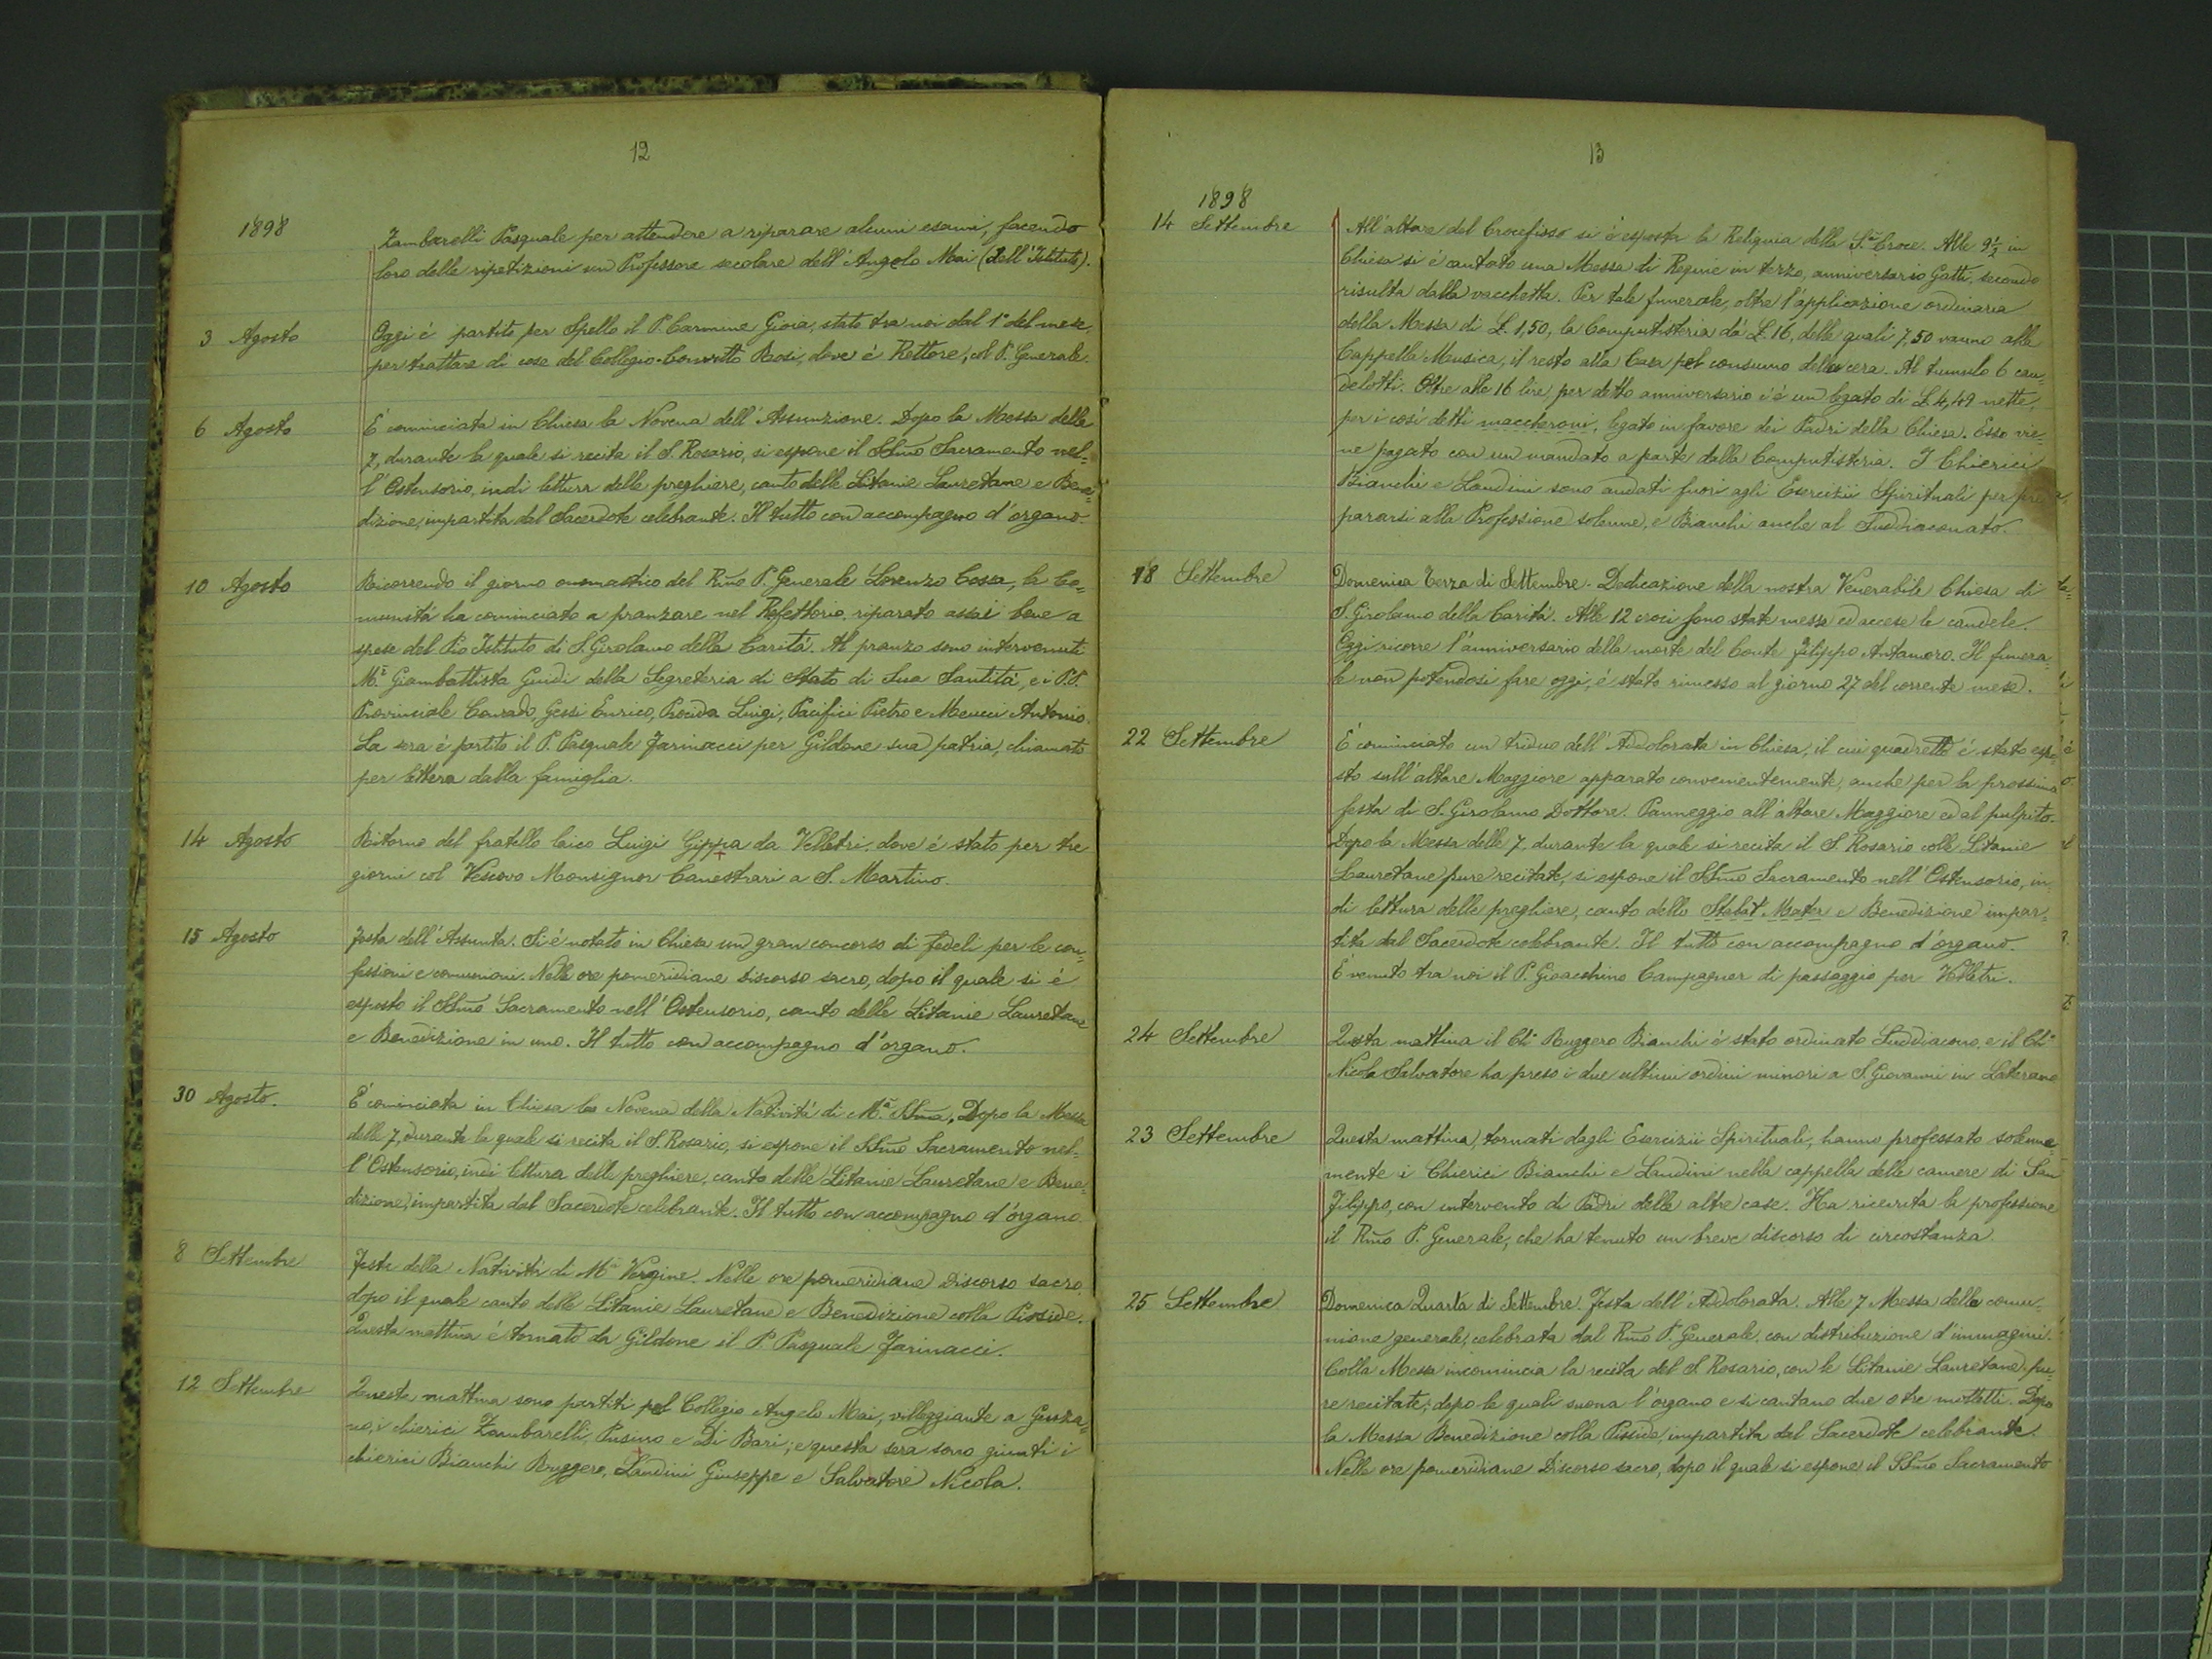 12
1898
Zambarelli Pasquale per attendere a riparare alcuni esami, facendo
loro delle ripetizioni un Professore secolare dell'Angelo Mai (dell'Istituto).
3 Agosto Oggi è partito per Spello il P. Carmine Gioia, stato tra noi dal 1° del mese,
per trattare di cose del Collegio-Convitto Rosi, dove è Rettore, col P. Generale.
6 Agosto È cominciata in Chiesa la Novena dell'Assunzione. Dopo la Messa delle
7, durante la quale si recita il S. Rosario, si espone il SSmo Sacramento nel-
l'Ostensorio, indi lettura delle preghiere, canto delle Litanie Lauretane e Bene-
dizione, impartita dal Sacerdote celebrante. Il tutto con accompagno d'organo.
10 Agosto Ricorrendo il giorno onomastico del Rmo P. Generale Lorenzo Cossa, la Co-
munità ha cominciato a pranzare nel Refettorio, riparato assai bene a
spese del Pio Istituto di S. Girolamo della Carità. Al pranzo sono intervenuti
Mr. Giambattista Guidi della Segreteria di Stato di Sua Santità, e i P.P.
Provinciale Conrado, Gessi Enrico, Procida Luigi, Pacifici Pietro e Meucci Antonio.
La sera è partito il P. Pasquale Farinacci per Gildone sua patria, chiamato
per lettera dalla famiglia.
14 Agosto Ritorno del fratello laico Luigi Gippa da Velletri, dove è stato per tre
giorni col Vescovo Monsignor Canestrari a S. Martino.
15 Agosto Festa dell'Assunta. Si è notato in Chiesa un gran concorso di fedeli per le con-
fessioni e comunioni. Nelle ore pomeridiane discorso sacro, dopo il quale si è
esposto il SSmo Sacramento nell'Ostensorio, canto delle Litanie Lauretane
e Benedizione in uno. Il tutto con accompagno d'organo.
30 Agosto. È cominciata in Chiesa la Novena della Natività di Ma SSma. Dopo la Messa
delle 7, durante la quale si recita il S. Rosario, si espone il SSmo Sacramento nel-
l'Ostensorio, indi lettura delle preghiere, canto delle Litanie Lauretane e Bene-
dizione, impartita dal Sacerdote celebrante. Il tutto con accompagno d'organo.
8 Settembre Festa della Natività di Ma Vergine. Nelle ore pomeridiane Discorso sacro,
dopo il quale canto delle Litanie Lauretane e Benedizione colla Pisside.
Questa mattina è tornato da Gildone il P. Pasquale Farinacci.
12 Settembre Questa mattina sono partiti pel Collegio Angelo Mai, villeggiante a Genza-
no, i chierici Zambarelli, Pusino e Di Bari; e questa sera sono giunti i
chierici Bianchi Ruggero, Landini Giuseppe e Salvatore Nicola.
13
1898
14 Settembre All'altare del Crocefisso si è esposta la Reliquia della S.a Croce. Alle 9½ in
Chiesa si è cantata una Messa di Requie in terzo, anniversario Gatti, secondo
risulta dalla vacchetta. Per tale funerale, oltre l'applicazione ordinaria
della Messa di £. 1,50, la Computisteria dà £. 16, delle quali 7,50 vanno alla
Cappella Musica, il resto alla Casa pel consumo della cera. Al tumulo 6 can-
delotti. Oltre alle 16 lire, per detto anniversario c'è un legato di £ 4,49 nette,
per i così detti maccheroni, legato in favore dei Padri della Chiesa. Esso vie-
ne pagato con un mandato a parte dalla Computisteria. I Chierici
Bianchi e Landini sono andati fuori agli Esercizii Spirituali per pre-
pararsi alla Professione solenne, e Bianchi anche al Suddiaconato.
18 Settembre Domenica Terza di Settembre. Dedicazione della nostra Venerabile Chiesa di
S. Girolamo della Carità. Alle 12 croci sono state messe ed accese le candele.
Oggi ricorre l'anniversario della morte del Conte Filippo Antamoro. Il funera-
le non potendosi fare oggi, è stato rimesso al giorno 27 del corrente mese.
22 Settembre È cominciato un triduo dell'Addolorata in Chiesa, il cui quadretto è stato espo-
sto sull'altare Maggiore apparato convenientemente, anche per la prossima
festa di S. Girolamo Dottore. Panneggio all'altare Maggiore ed al pulpito.
Dopo la Messa delle 7, durante la quale si recita il S. Rosario colle Litanie
Lauretane pure recitate, si espone il SSmo Sacramento nell'Ostensorio, in-
di lettura delle preghiere, canto dello Stabat Mater e Benedizione impar-
tita dal Sacerdote celebrante. Il tutto con accompagno d'organo.
È venuto tra noi il P. Gioacchino Campagner di passaggio per Velletri.
24 Settembre Questa mattina il Ch° Ruggero Bianchi è stato ordinato Suddiacono, e il Ch°
Nicola Salvatore ha preso i due ultimi ordini minori a S. Giovanni in Laterano
23 Settembre Questa mattina, tornati dagli Esercizii Spirituali, hanno professato solenne-
mente i Chierici Bianchi e Landini nella cappella delle camere di San
Filippo, con intervento di Padri delle altre case. Ha ricevuta la professione
il Rmo P. Generale, che ha tenuto un breve discorso di circostanza.
25 Settembre Domenica Quarta di Settembre. Festa dell'Addolorata. Alle 7 Messa della comu-
nione generale, celebrata dal Rmo P. Generale, con distribuzione d'immagini.
Colla Messa incomincia la recita del S. Rosario, con le Litanie Lauretane pu-
re recitate; dopo le quali suona l'organo e si cantano due o tre mottetti. Dopo
la Messa Benedizione colla Pisside, impartita dal Sacerdote celebrante.
Nelle ore pomeridiane Discorso sacro, dopo il quale si espone il SSmo Sacramento